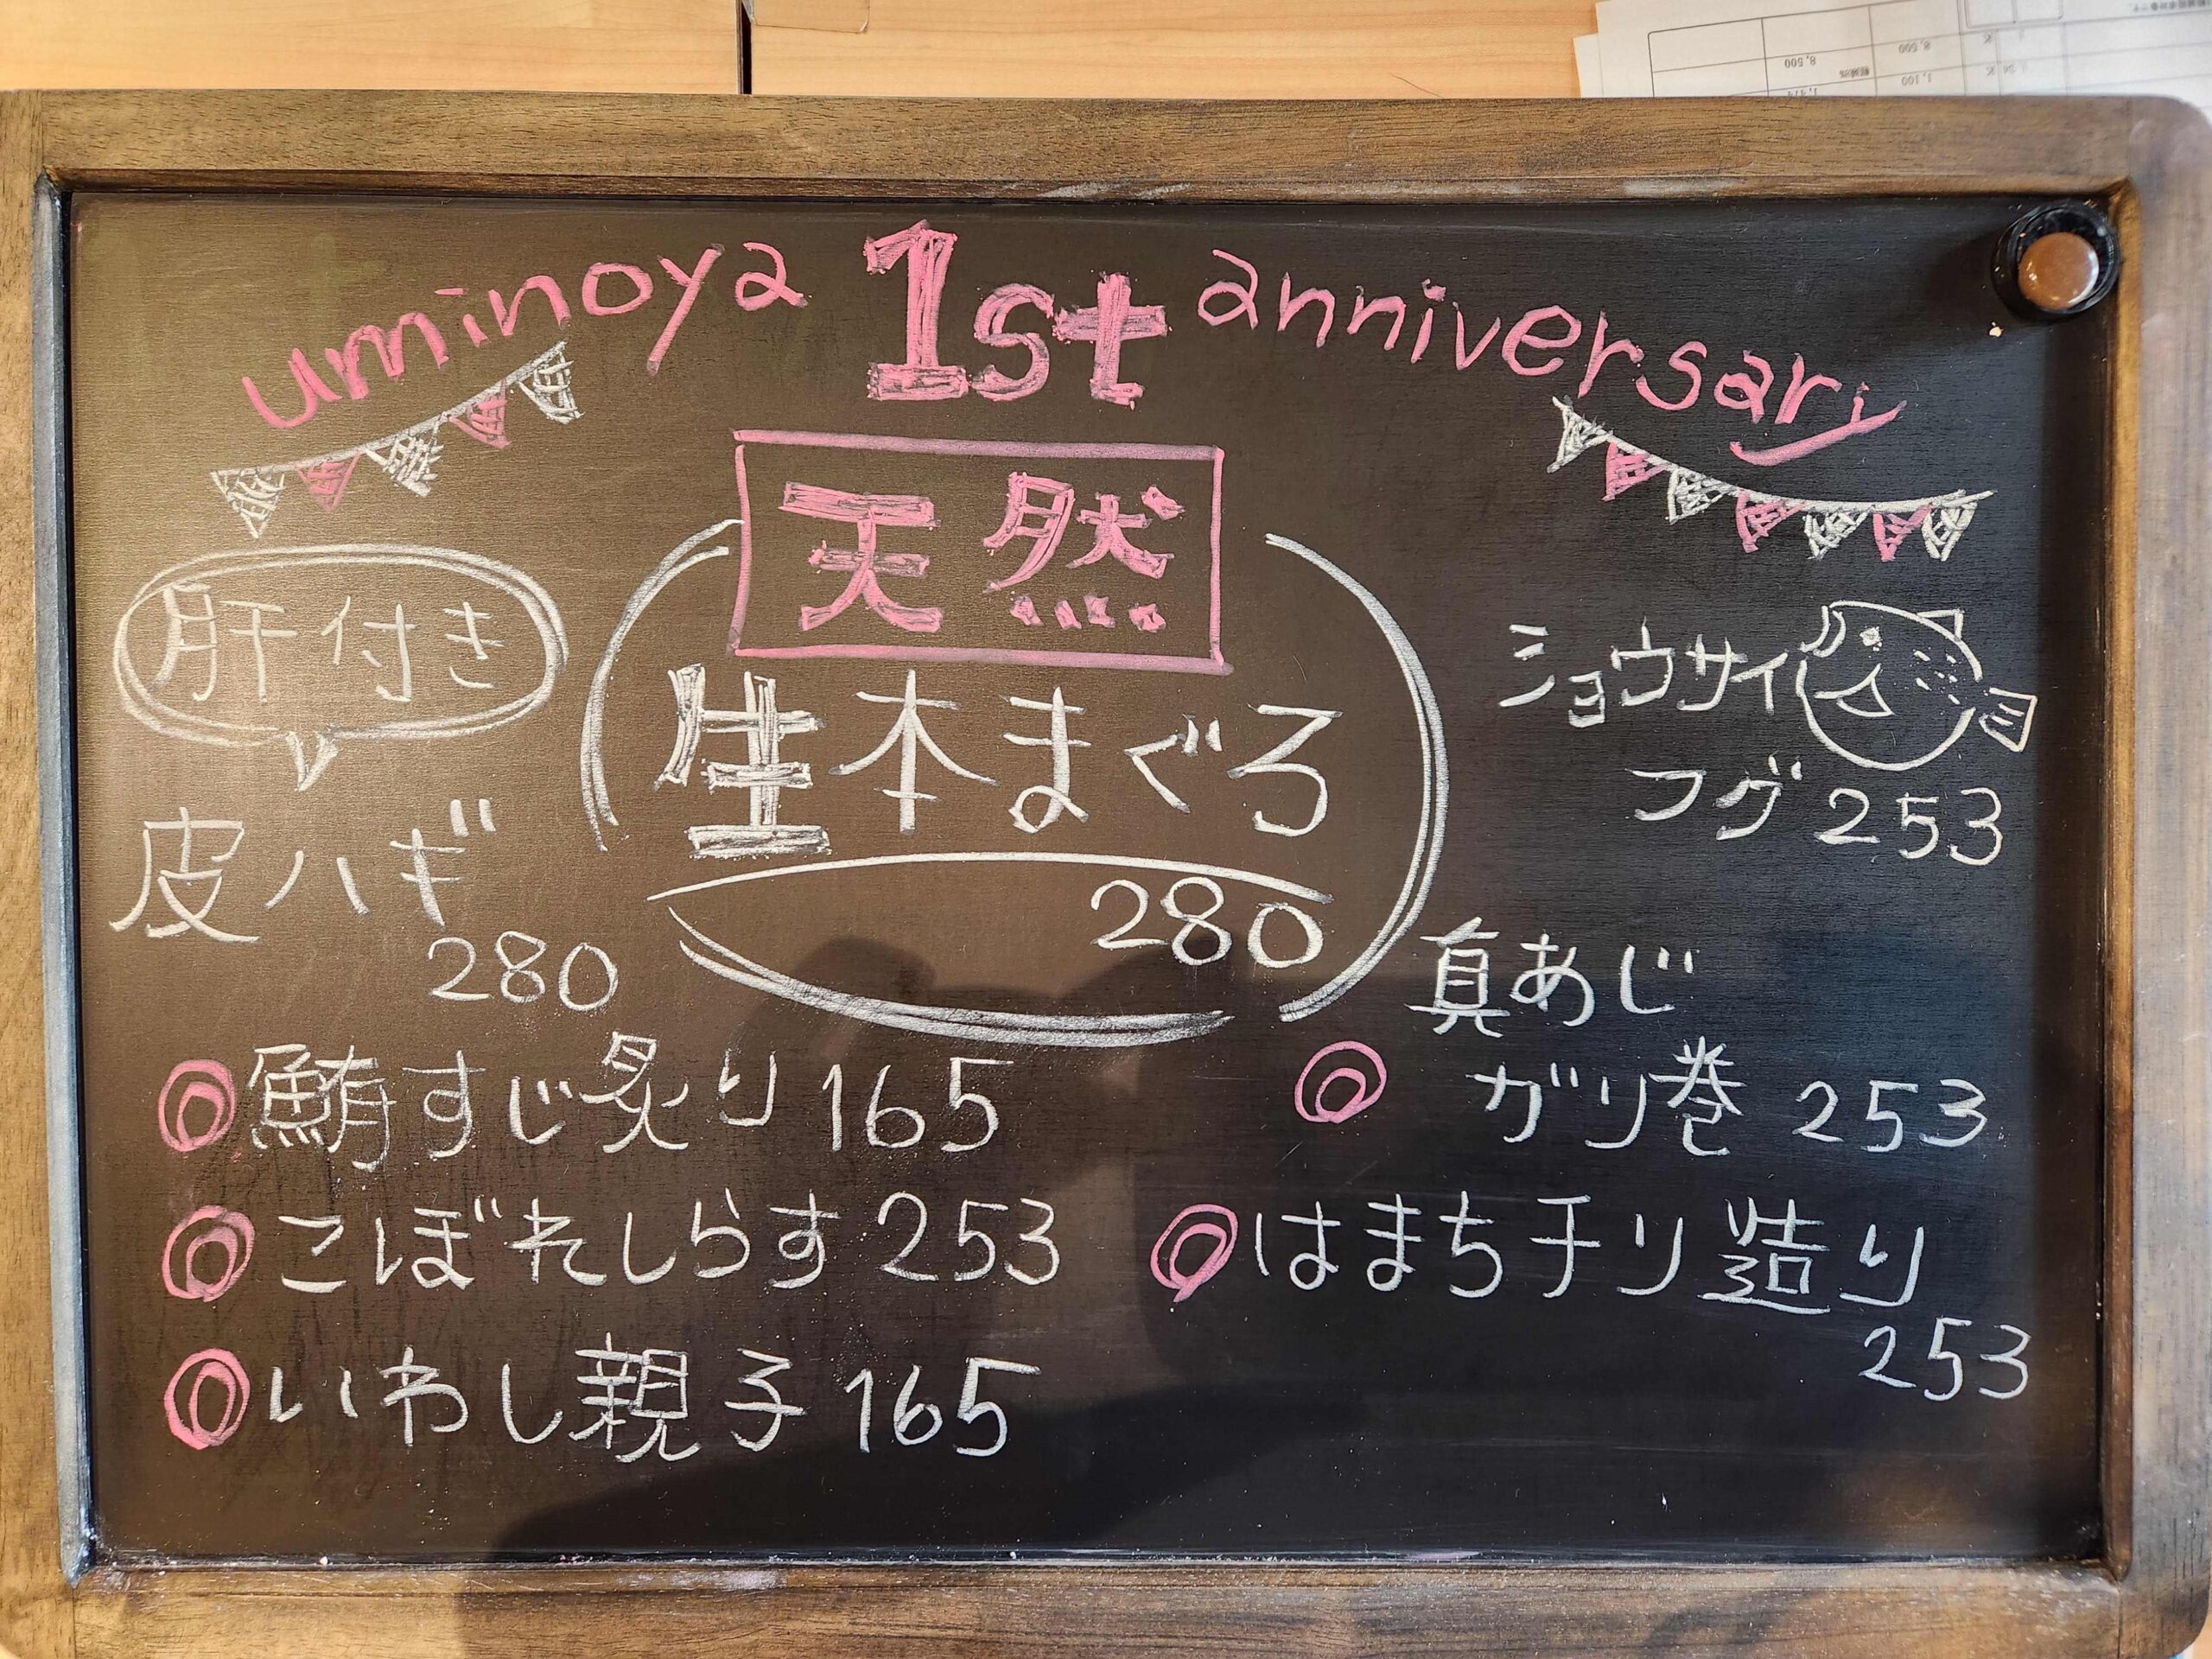 uminoya 1st anniversary
天然
生本まぐろ
280
肝付き
皮ハギ
280
ショウサイ
フグ 253
真あじ
ガリ巻 253
鮪すじ炙り 165
こぼれしらす 253
はまちチリ造り
253
いわし親子 165
8,500
8,500
1,100